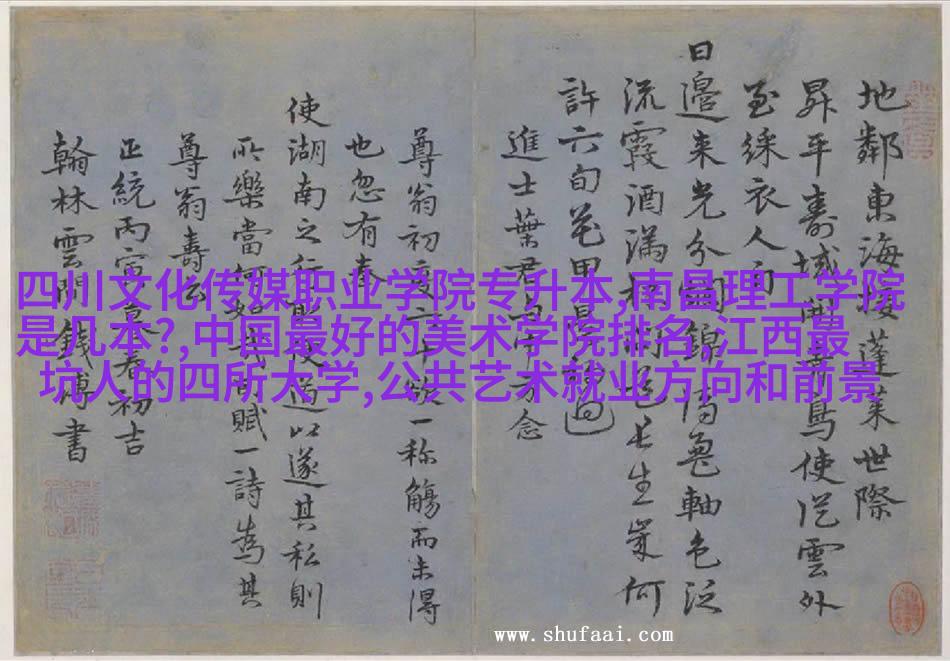 地鄰東海接蓬萊世際
昇平壽域開青鳥使從雲外
至綵衣人向
日邊来光分錦軸色泛
流霞酒滿長生策何
許六旬花甲
進士葉君方念
尊翁初度一称觴而未得
也忽有奉
使湖南之行道以遂其私則
所樂當何如哉賦一詩為其
尊翁壽云
正統丙寅暮春初吉
翰林雲間錢博書
四川文化传媒职业学院专升本,南昌理工学院
是几本?,中国最好的美术学院排名,江西最
坑人的四所大学,公共艺术就业方向和前景
www.shufaai.com